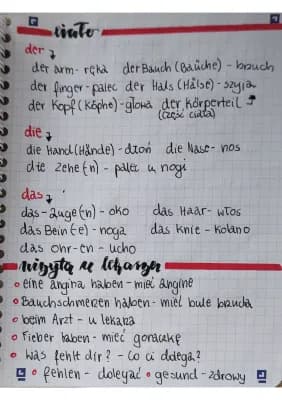 ciało
der ↓
der arm - ręka der Bauch (Bäuche) - brzuch
der finger - palec der Hals (Hälse) - szyja
der Kopf (Köphe) - głowa der Körperteil
(część ciała)
die ↓
die Hand (Hände) - dłoń die Nase - nos
die Zehe (n) - palec u nogi
das ↓
das - Auge (n) - oko das Haar - włos
das Bein (e) - noga das Knie - kolano
das Ohr - en - ucho
wizyta u lekarza
eine angina haben - mieć anginę
Bauchschmerzen haben - mieć bule brzucha
beim Arzt - u lekarza
Fieber haben - mieć gorączkę
Was fehlt dir? - Co ci dolega?
fehlen - dolegać gesund - zdrowy